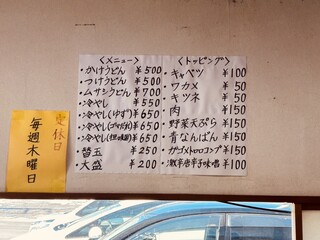 <メニュー>
・かけうどん ¥500
・つけうどん ¥500
・ムサシうどん ¥700
・冷やし ¥550
・冷やし(ゆず) ¥650
・冷やし(ゴマだれ) ¥650
・冷やし(担々風) ¥650
・替玉 ¥250
・大盛 ¥200
<トッピング>
・キャベツ ¥100
・ワカメ ¥50
・キツネ ¥50
・肉 ¥150
・野菜天ぷら ¥150
・青なんばん ¥150
・ガゴメトロロコンブ ¥150
・激辛唐辛子味噌 ¥100
定休日
毎週木曜日